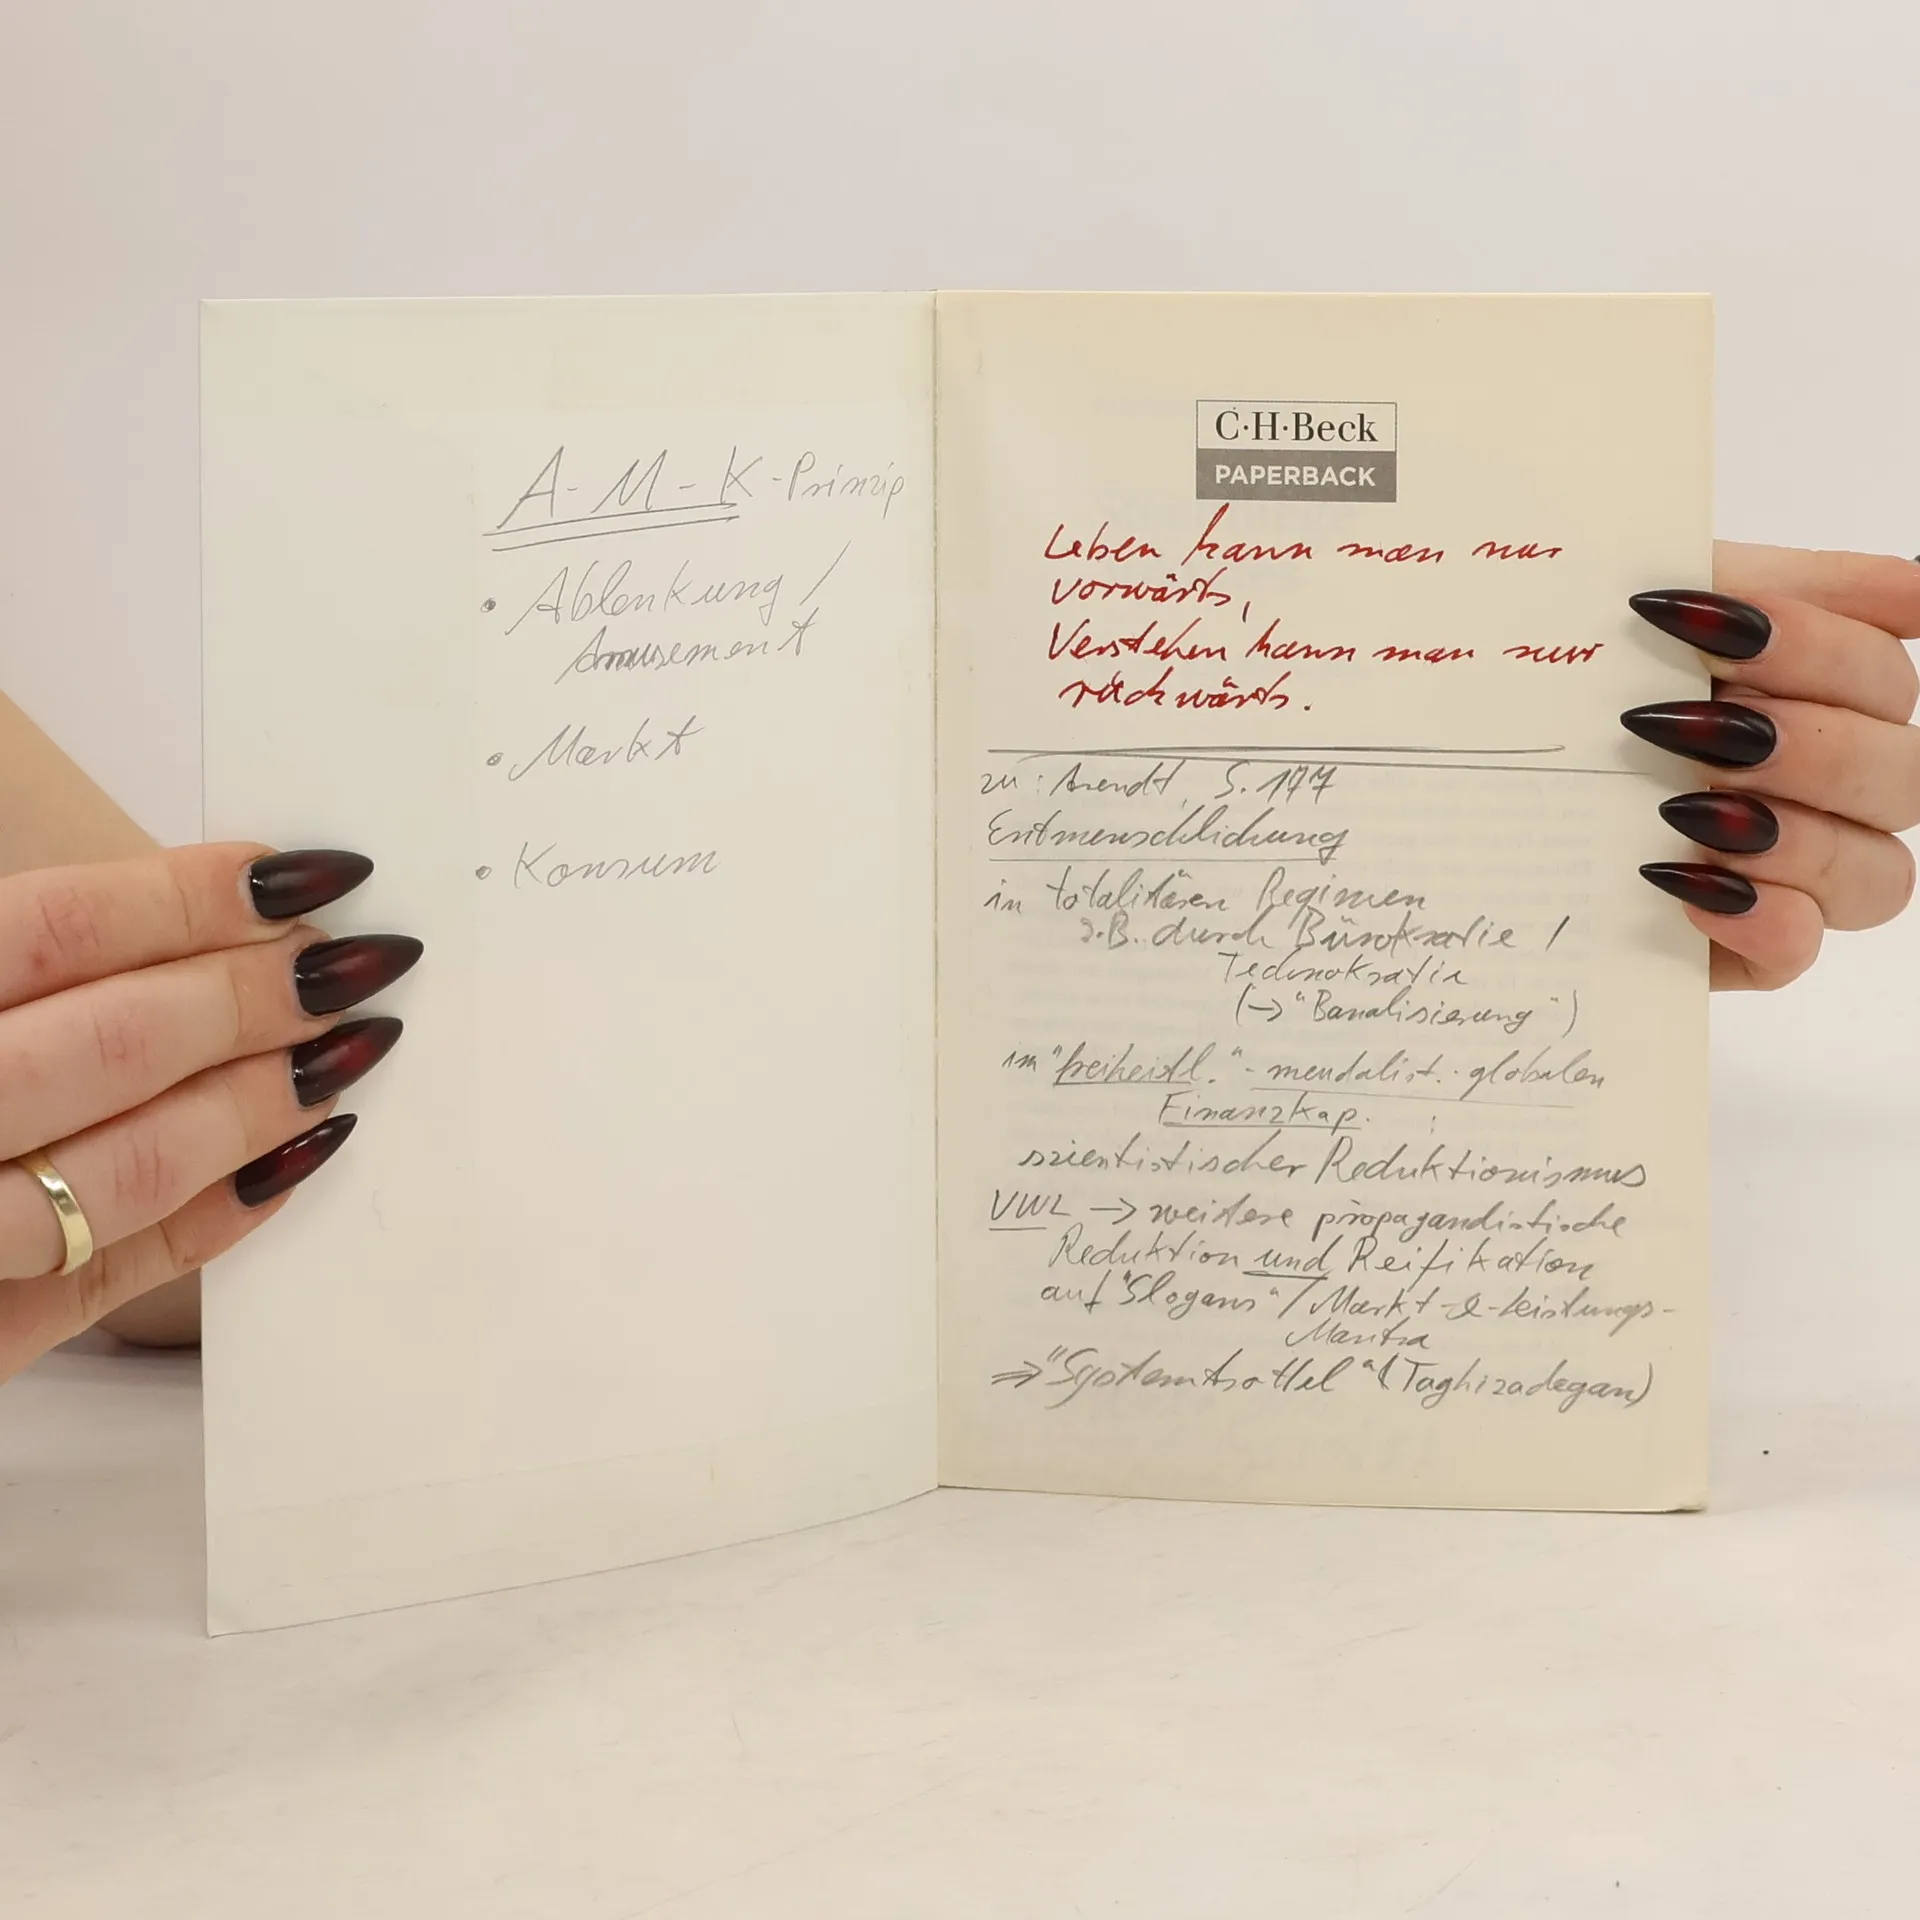 A-M-K-Prinzip
• Ablenkung /
Amusement
• Markt
• Konsum
C·H·Beck
PAPERBACK
Leben kann man nur
vorwärts,
Verstehen kann man nur
rückwärts.
zu: Arendt, S. 177
Entmenschlichung
in totalitären Regimen
z.B. durch Bürokratie /
Technokratie
(→ "Banalisierung")
im "freiheitl."- globalen
Finanzkap. :
szientistischer Reduktionismus
VWL → weitere propagandistische
Reduktion und Reifikation
auf "Slogans" / Markt-&-Leistungs-
Mantra
⇒ "Systemtrottel" (Taghizadegan)